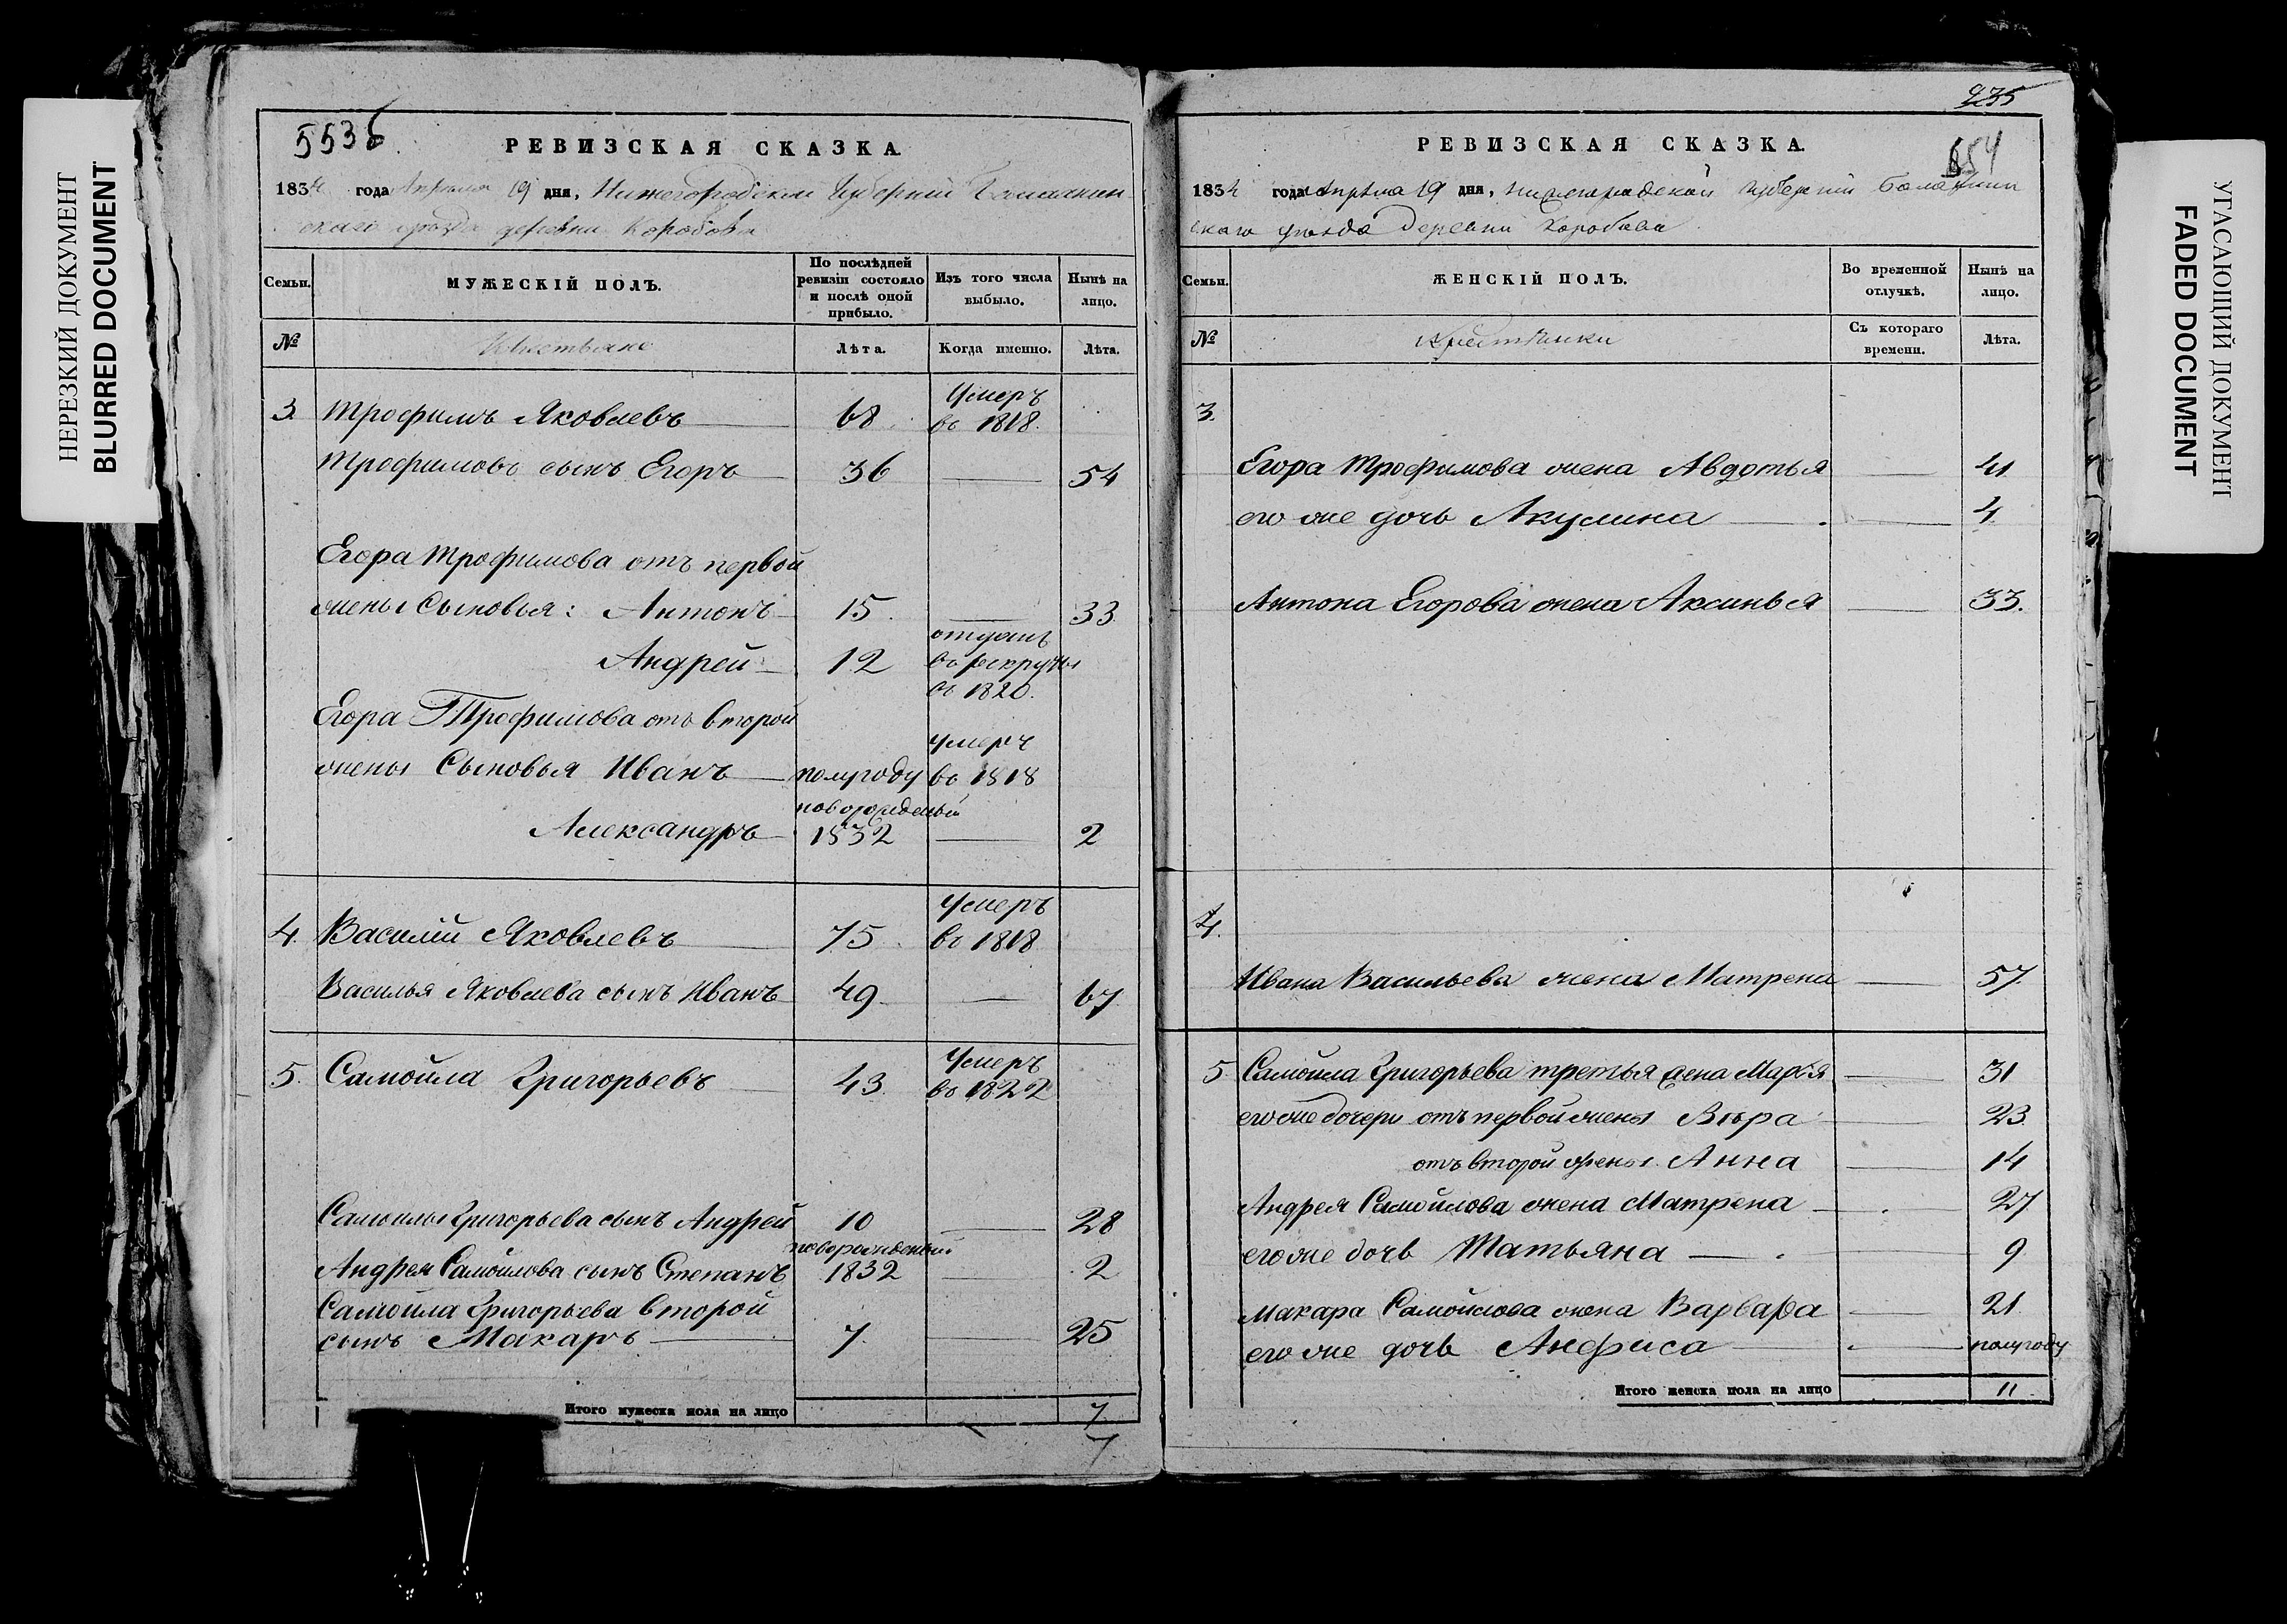 НЕРЕЗКИЙ ДОКУМЕНТ
BLURRED DOCUMENT
5536
РЕВИЗСКАЯ СКАЗКА.
1834 года Апреля 19 дня, Нижегородской Губернiи Балахнин
скаго уѣзда деревни Коробова
Семьи.
МУЖЕСКІЙ ПОЛЪ.
По послѣдней ревизіи состояло и послѣ оной прибыло.
Изъ того числа выбыло.
Нынѣ на лицо.
№
Крестьяне
Лѣта.
Когда именно.
Лѣта.
3. Трофимъ Яковлевъ 68 Умеръ въ 1818.
Трофимовъ сынъ Егоръ 36 54
Егора Трофимова отъ первой
жены Сыновья: Антонъ 15. 33.
Андрей 12 отданъ въ рекруты въ 1820.
Егора Трофимова отъ второй
жены Сыновья Иванъ полугоду умеръ въ 1818
Александръ новорожденый 1832 2
4. Василій Яковлевъ 75 Умеръ въ 1818
Василья Яковлева сынъ Иванъ 49 67
5. Самойла Григорьевъ 43. Умеръ въ 1822
Самойлы Григорьева сынъ Андрей 10 28
Андрея Самойлова сынъ Степанъ новорожденый 1832 2
Самойла Григорьева второй
сынъ Макаръ 7. 25
Итого мужеска пола на лицо 7
7
935
654
РЕВИЗСКАЯ СКАЗКА.
1834 года Апрѣля 19 дня, Нижегородской Губерніи Балахнин
скаго уѣзда деревни Коробова
Семьи.
ЖЕНСКІЙ ПОЛЪ.
Во временной отлучкѣ.
Нынѣ на лицо.
№
Крестьянки
Съ котораго времени.
Лѣта.
3.
Егора Трофимова жена Авдотья 41
его же дочь Акулина 4
Антона Егорова жена Аксинья 33.
4.
Ивана Васильева жена Матрена 57.
5 Самойла Григорьева третья жена Марья 31
его же дочери отъ первой жены Вѣра 23
отъ второй жены Анна 14
Андрея Самойлова жена Матрена 27
его же дочь Татьяна 9
Макара Самойлова жена Варвара 21
его же дочь Анфиса полугоду
Итого женска пола на лицо 11
УГАСАЮЩИЙ ДОКУМЕНТ
FADED DOCUMENT